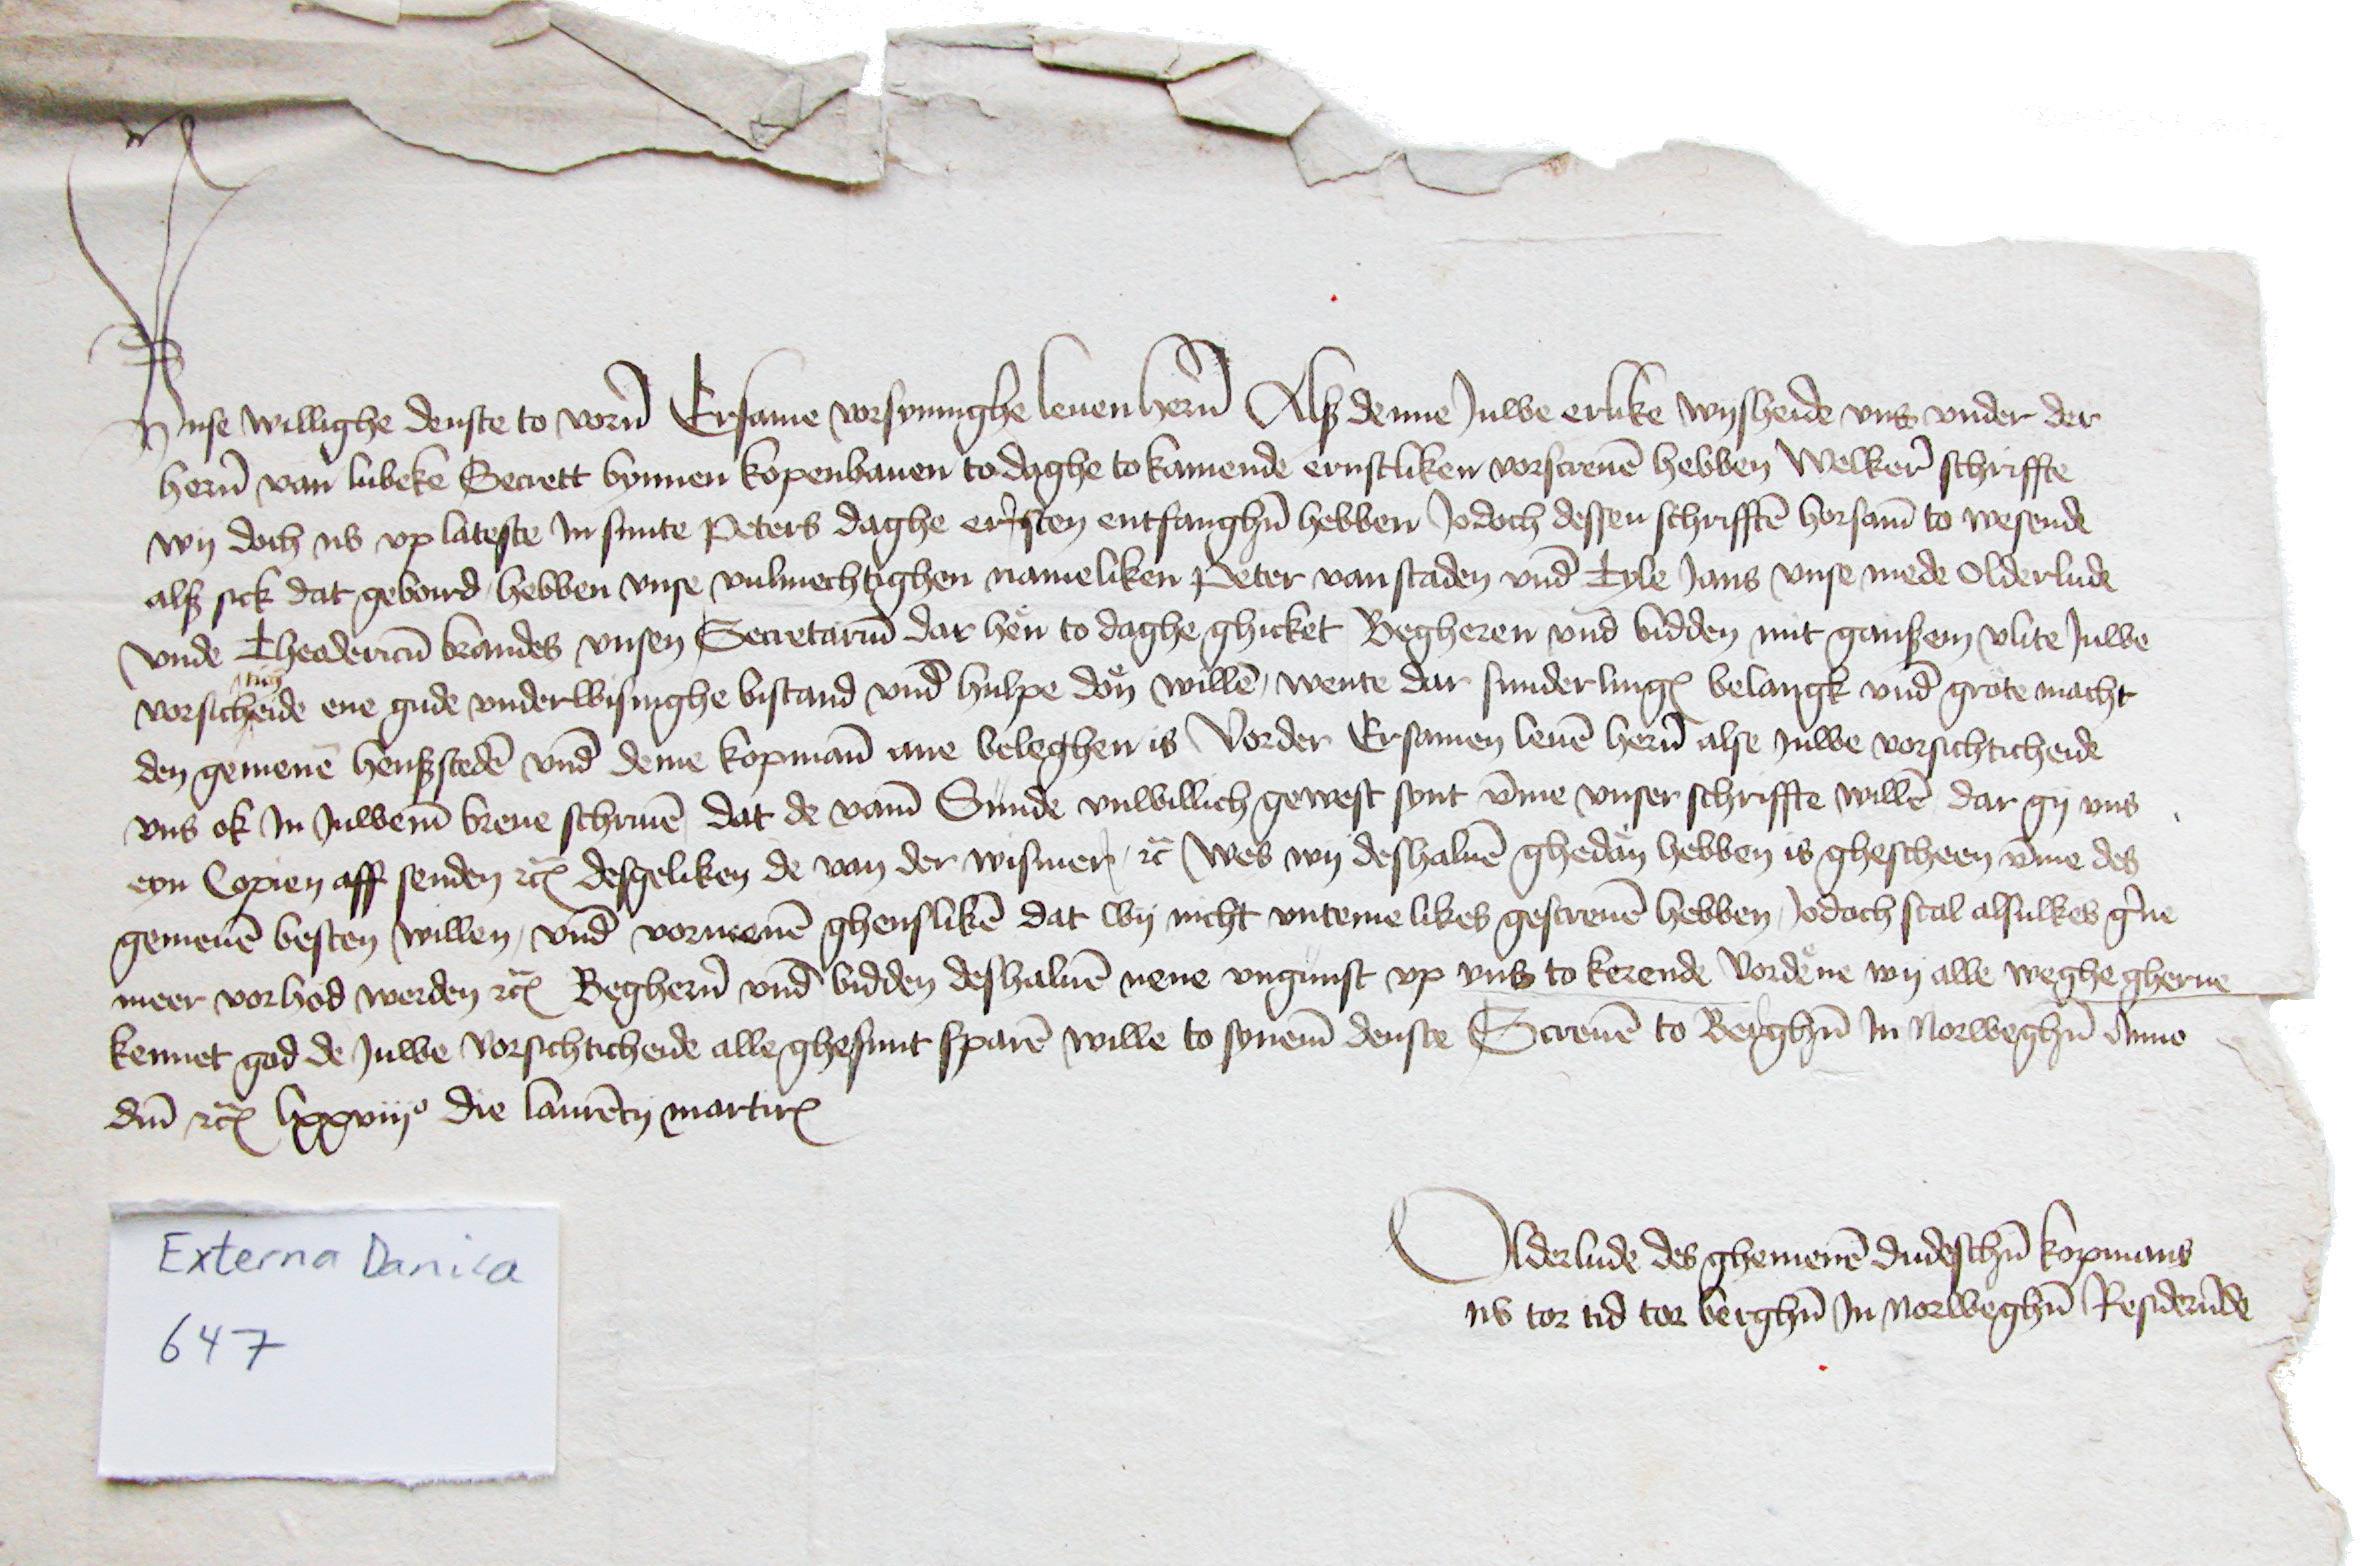 Unse willighe denste to vorn̄ Ersame vorsynnighe leuen hern̄ Alsz denne Juwe erlike wijsheide vns vnder der
hern̄ van lubeke Secrett bynnen kopenhauen to daghe to kamende ernstliken vorscreuē hebben Welker schriffte
wij doch nv vp lateste In sunte Peters daghe ersten entfanghn̄ hebben Jodoch dessen schrifftē horsam̄ to wesende
alsz sick dat gebourd / hebben vnse vulmechtighen nameliken Peter van staden vnd̄ Tyle Jans vnse mede Olderlude
vnde Theodericū brandes vnsen Secretariū dar hen to daghe ghicket Begheren vnd bidden mit ganszem vlite Juwe
vorsichticheide ene gude vnderwisinghe bistand vnd̄ hulpe dön willē / wente dar sunderlingx belangk vnd̄ grote macht
den gemenē henszstedē vnd̄ deme kopman̄ ane beleghen is Vorder Ersamen leuē hern̄ alse juwe vorsichticheide
vns ok In Juwem̄ breue schriuē / dat de vam̄ Sunde vnwillich gewest synt v̄me vnser schriffte willē / dar gij vns
eyn Copien aff senden rc̄ desgeliken de van der wismer / rc̄ Wes wij deshaluē ghedän hebben is ghescheen v̄me des
gemenē besten willen / vnd̄ vormenē ghenslikē dat wij nicht vntemelikes gescreuē hebben / Jodoch scal alsulkes ḡne
meer vorhod werden rc̄ Beghern̄ vnd̄ bidden deshaluē nene vngunst vp vns to kerende Vordene wij alle weghe gherne
kennet god de Juwe vorsichticheide alle ghesunt sparē wille to synem̄ denste Screuē to Berghn̄ In Norweghn̄ Anno
dn̄i rc̄ lxxviijº die laurēcij martirꝭ
Olderlude des ghemenē dudeschn̄ kopmans
nv tor tid tor berghn̄ In Norweghn̄ Residern̄de
Externa Danica
647